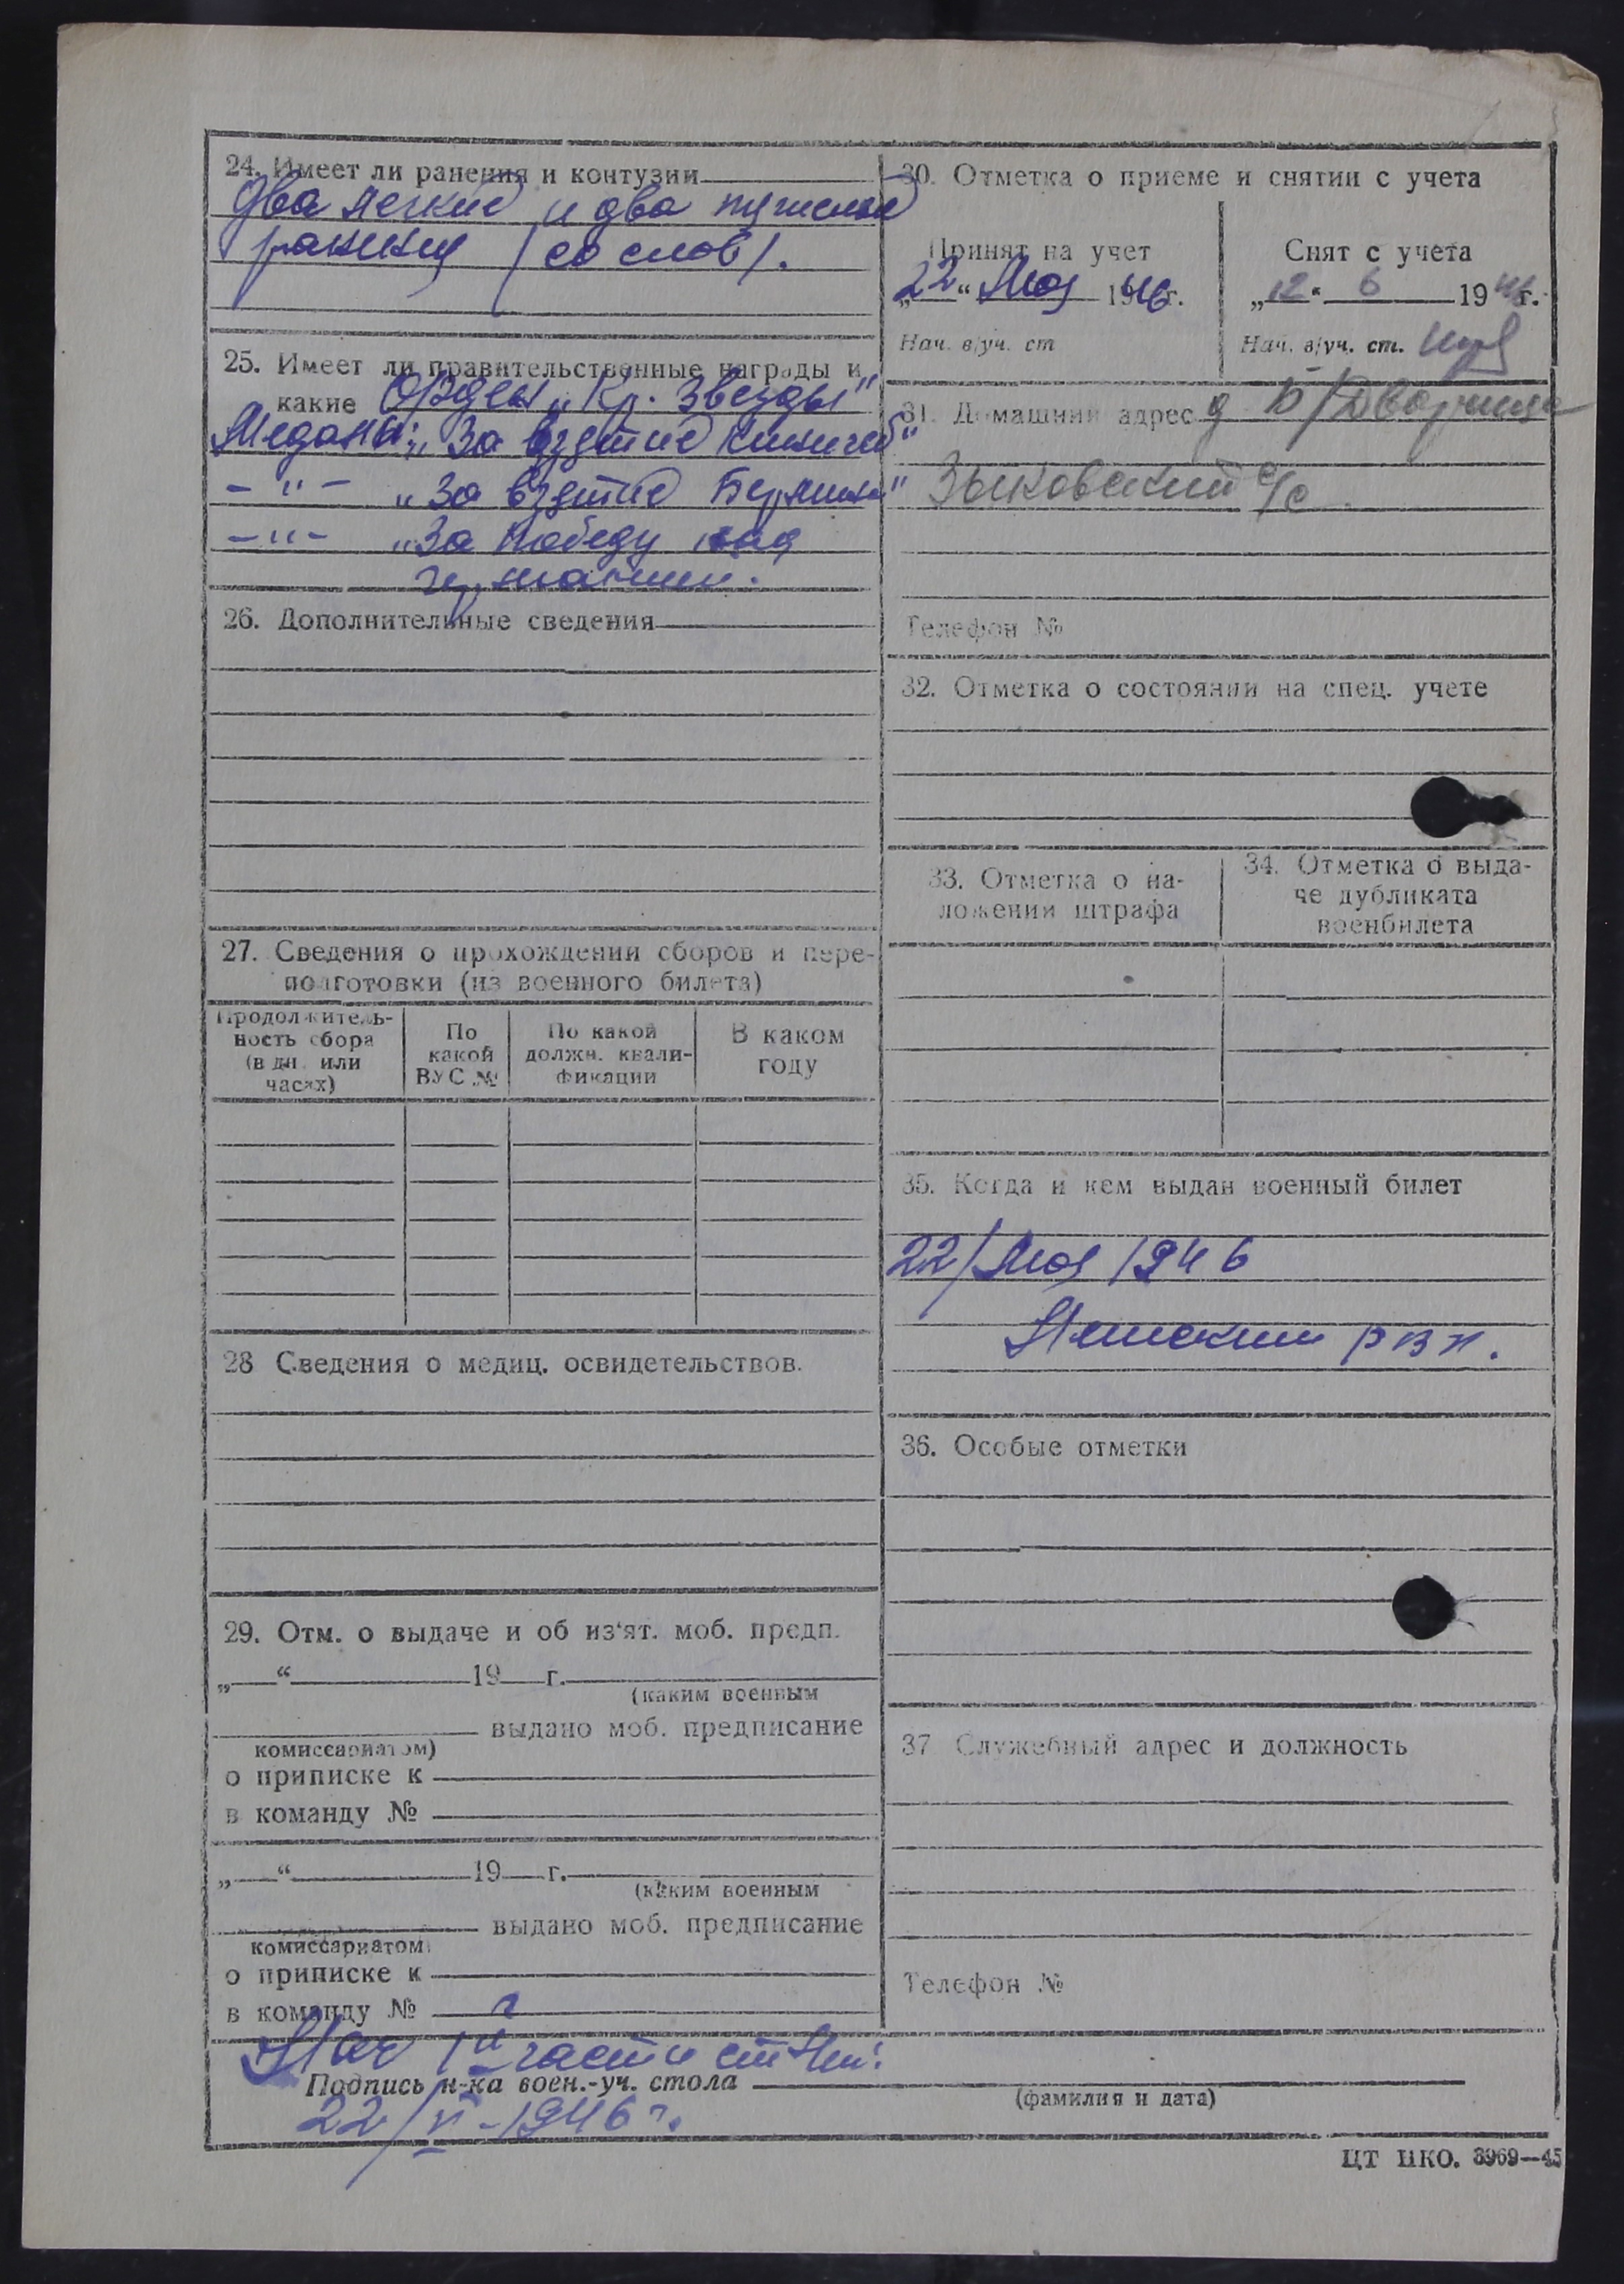 24. Имеет ли ранения и контузии
два легкие и два тяжелые
ранения (со слов).
25. Имеет ли правительственные награды и
какие Орден „Кр. Звезды"
Медали: „За взятие Кенигсб"
– " – „За взятие Берлина"
– " – „За победу над
германией.
26. Дополнительные сведения
27. Сведения о прохождении сборов и пере-
подготовки (из военного билета)
Продолжитель-
ность сбора
(в дн. или
часах)
По
какой
ВУС №
По какой
должн. квали-
фикации
В каком
году
28 Сведения о медиц. освидетельствов.
29. Отм. о выдаче и об из'ят. моб. предп.
„ “ 19 г.
(каким военным
выдано моб. предписание
комиссариатом)
о приписке к
в команду №
„ “ 19 г.
(каким военным
выдано моб. предписание
комиссариатом)
о приписке к
в команду №
30. Отметка о приеме и снятии с учета
Принят на учет
„22“ Мая 1946 г.
Нач. в/уч. ст
Снят с учета
„12“ 6 1946 г.
Нач. в/уч. ст.
31. Домашний адрес д Б/Дворище
Зыковский с/с
Телефон №
32. Отметка о состоянии на спец. учете
33. Отметка о на-
ложении штрафа
34. Отметка о выда-
че дубликата
военбилета
35. Когда и кем выдан военный билет
22/Мая 1946
рвк.
36. Особые отметки
37 Служебный адрес и должность
Телефон №
Нач 1й части ст
Подпись н-ка воен.-уч. стола
(фамилия и дата)
22/V-1946 г.
ЦТ НКО. 3969—45